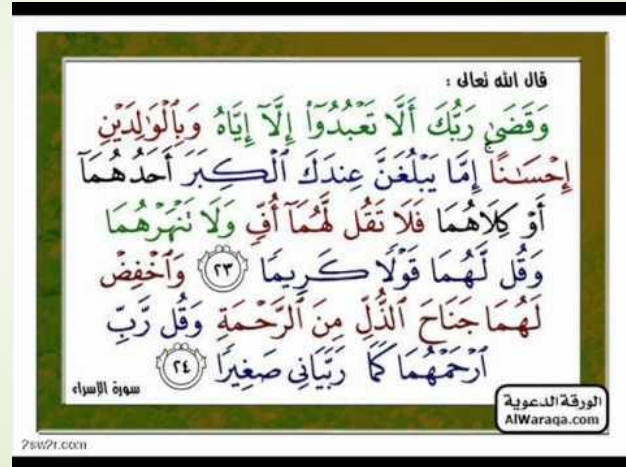 قال الله تعالى :
وَقَضَىٰ رَبُّكَ أَلَّا تَعْبُدُوٓا۟ إِلَّآ إِيَّاهُ وَبِٱلْوَٰلِدَيْنِ
إِحْسَـٰنًا ۚ إِمَّا يَبْلُغَنَّ عِندَكَ ٱلْكِبَرَ أَحَدُهُمَآ
أَوْ كِلَاهُمَا فَلَا تَقُل لَّهُمَآ أُفٍّ وَلَا تَنْهَرْهُمَا
وَقُل لَّهُمَا قَوْلًا كَرِيمًا ٢٣ وَٱخْفِضْ
لَهُمَا جَنَاحَ ٱلذُّلِّ مِنَ ٱلرَّحْمَةِ وَقُل رَّبِّ
ٱرْحَمْهُمَا كَمَا رَبَّيَانِى صَغِيرًا ٢٤
سورة الإسراء
الورقة الدعوية
AlWaraqa.com
2sw2r.com